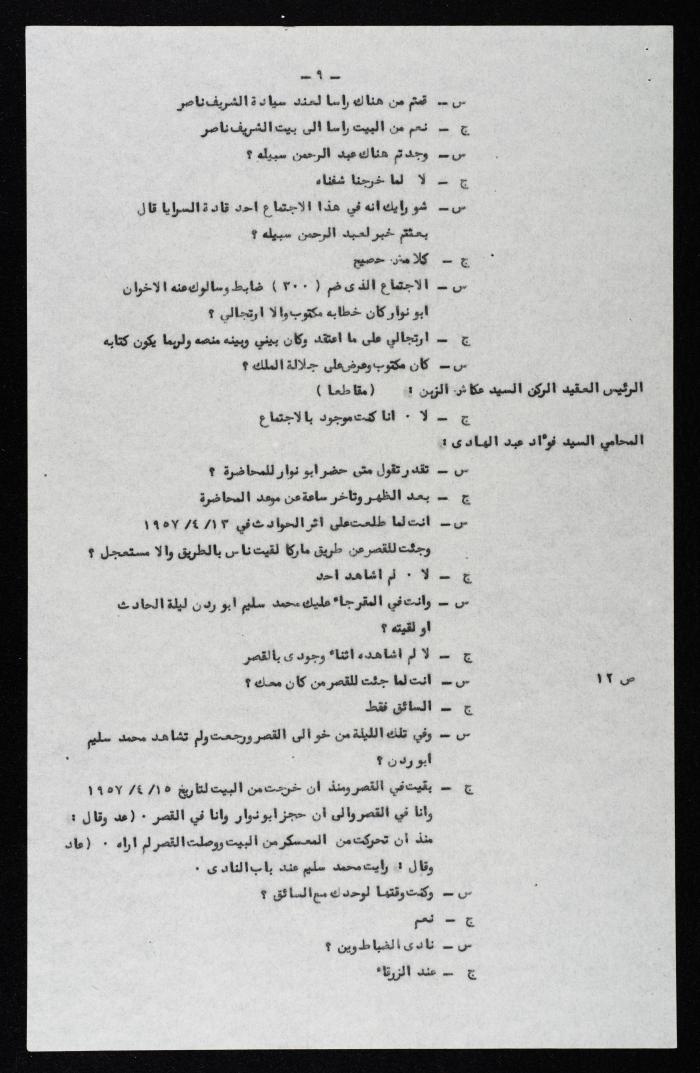 - ٩ -
س - قمتم من هناك راسا لعند سيادة الشريف ناصر
ج - نعم من البيت راسا الى بيت الشريف ناصر
س - وجدتم هناك عبد الرحمن سبيله ؟
ج - لا لما خرجنا شفناه
س - شو رايك انه في هذا الاجتماع احد قادة السرايا قال
بعثتم خبر لعبد الرحمن سبيله ؟
ج - كلا مش صحيح
س - الاجتماع الذى ضم ( ٣٠٠ ) ضابط وسالوك عنه الاخوان
ابو نوار كان خطابه مكتوب والا ارتجالي ؟
ج - ارتجالي على ما اعتقد وكان بيني وبينه منصه ولربما يكون كتابه
س - كان مكتوب وعرض على جلالة الملك ؟
الرئيس العقيد الركن السيد عكاش الزبن : ( مقاطعا )
ج - لا ٠ انا كنت موجود بالاجتماع
المحامي السيد فوءاد عبد الهادى :
س - تقدر تقول متى حضر ابو نوار للمحاضرة ؟
ج - بعد الظهر وتاخر ساعة عن موعد المحاضرة
س - انت لما طلعت على اثر الحوادث في ١٣/ ٤/ ١٩٥٧
وجئت للقصر عن طريق ماركا لقيت ناس بالطريق والا مستعجل ؟
ج - لا ٠ لم اشاهد احد
س - وانت في المقر جاء عليك محمد سليم ابو ردن ليلة الحادث
او لقيته ؟
ج - لا لم اشاهده اثناء وجودى بالقصر
س - انت لما جئت للقصر من كان معك ؟
ص ١٢
ج - السائق فقط
س - وفي تلك الليلة من خو الى القصر ورجعت ولم تشاهد محمد سليم
ابو ردن ؟
ج - بقيت في القصر ومنذ ان خرجت من البيت لتاريخ ١٥/ ٤/ ١٩٥٧
وانا في القصر والى ان حجز ابو نوار وانا في القصر ٠ ( عد وقال :
منذ ان تحركت من المعسكر من البيت ووصلت القصر لم اراه ٠ ( عاد
وقال : رايت محمد سليم عند باب النادى ٠
س - وكنت وقتها لوحدك مع السائق ؟
ج - نعم
س - نادى الضباط وين ؟
ج - عند الزرقاء